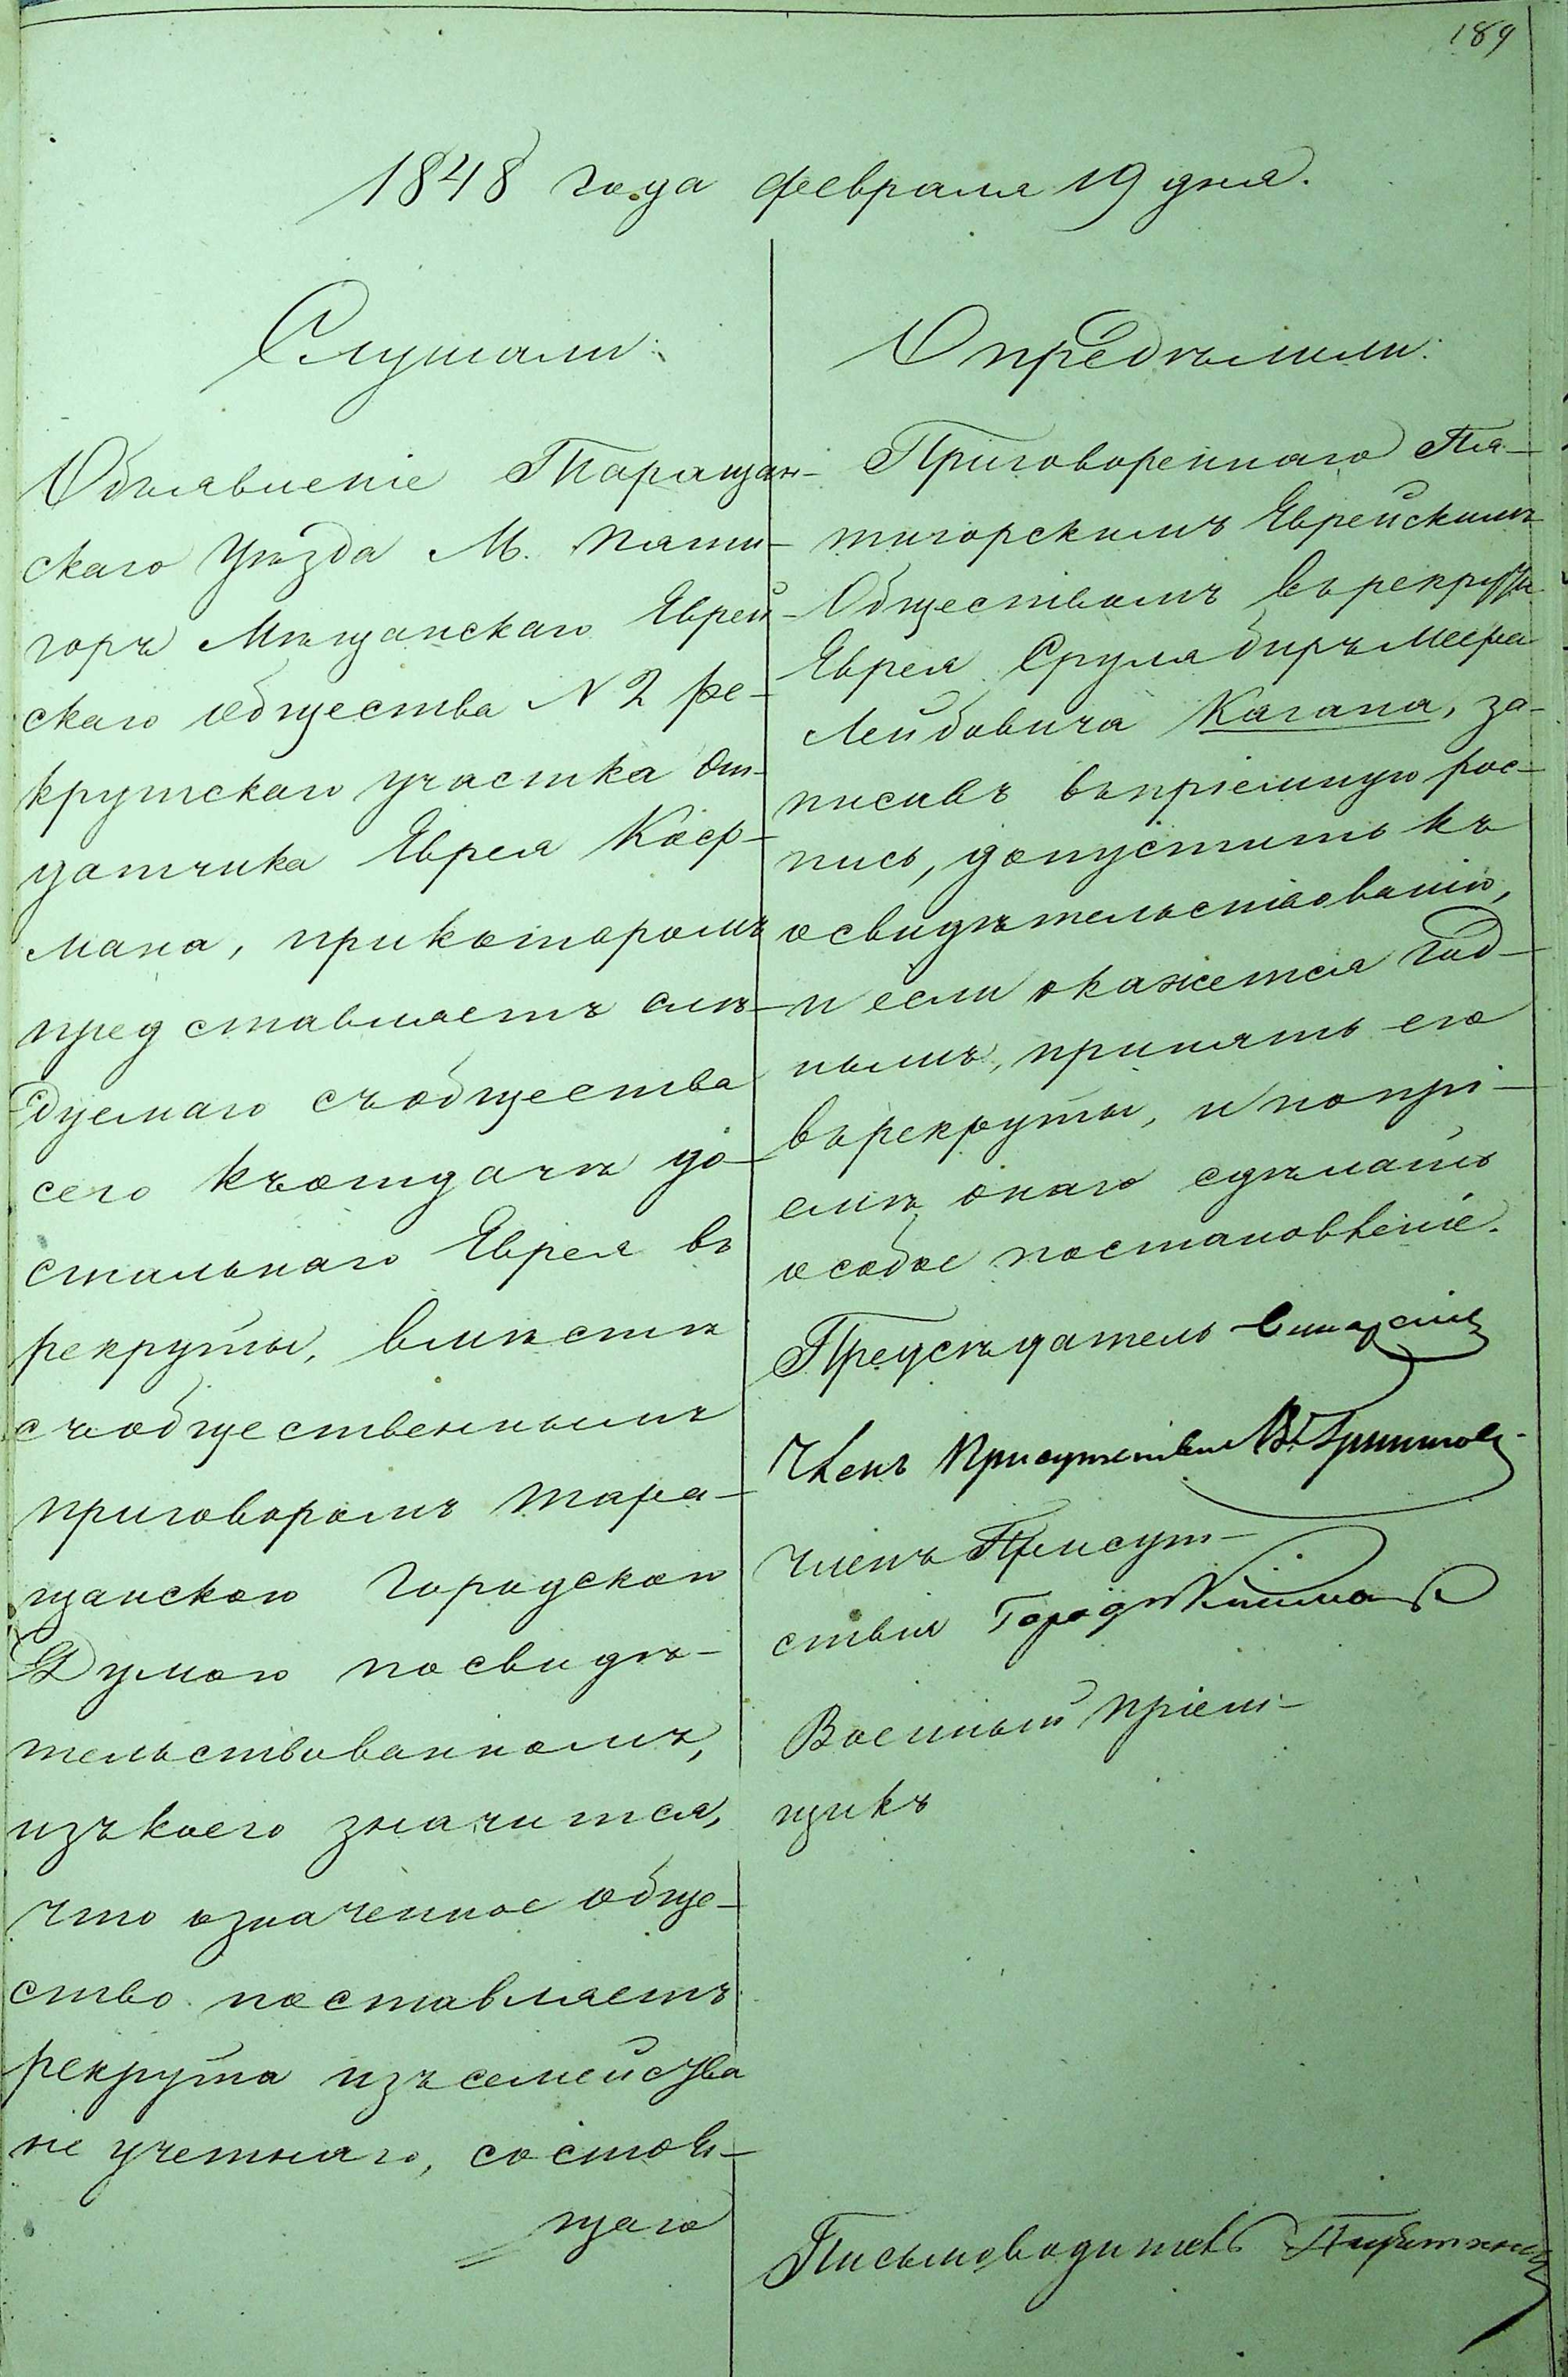 189
1848 года февраля 19 дня.
Слушали:
Объявленіе Таращан-
скаго Уѣзда М. Пяти-
горъ Мѣщанскаго Еврей-
скаго общества N 2 ре-
крутскаго участка От-
датчика Еврея Коф-
мана, прикоторомъ
представляетъ слѣ-
дуемаго съобщества
сего къотдачѣ до-
стальнаго Еврея въ
рекруты, вмѣстѣ
съобщественнымъ
приговоромъ Тара-
щанскою Городскою
Думою посвидѣ-
тельствованномъ,
изъкоего значится,
что означенное обще-
ство поставляетъ
рекрута изъсемейства
не учетнаго, состоя-
щаго
Опредѣлили:
Приговореннаго Пя-
тигорскимъ Еврейскимъ
Обществомъ въ рекруты
Еврея Сруля Меера
Лейбовича Кагана, за-
писавъ въпріемную рос-
пись, допустить къ
освидѣтельствованію,
и если окажется год-
нымъ, принять его
върекруты, и попрі-
емѣ онаго сдѣлать
особое постановленіе.
Предсѣдатель
Членъ Присутствія
Членъ Присут-
ствія
Военный пріем-
щикъ
Письмоводитель